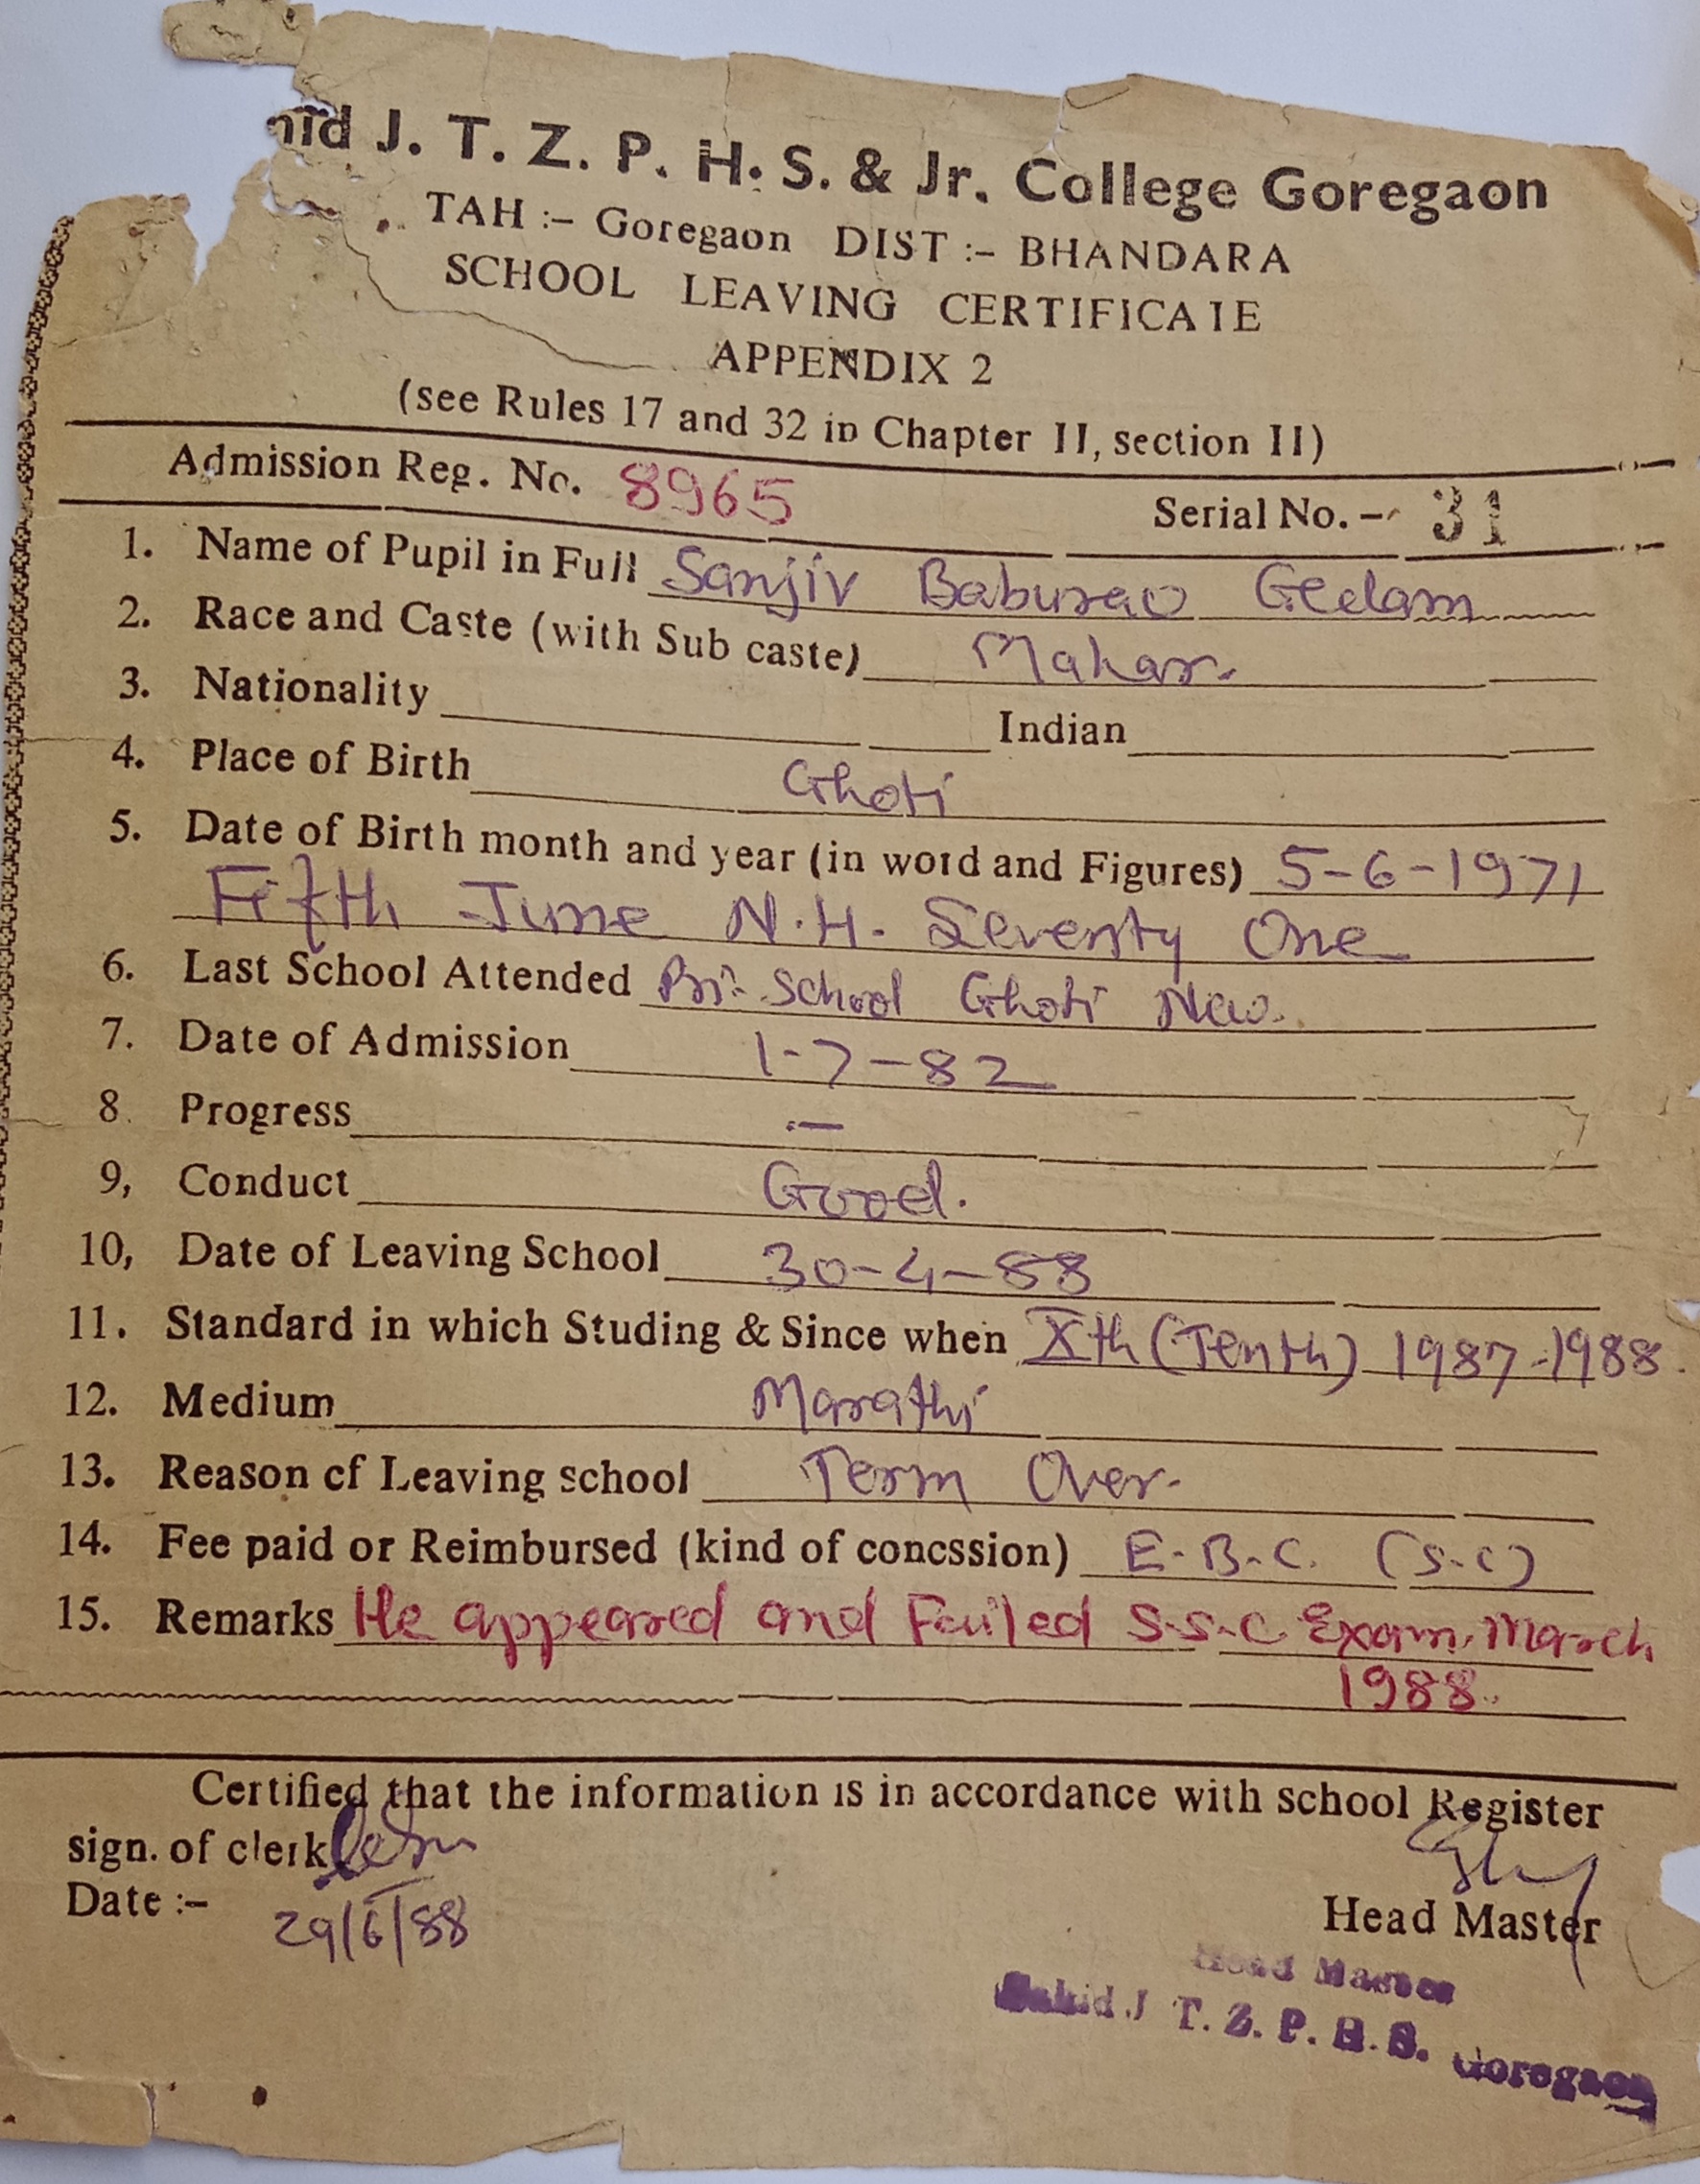 hid J. T. Z. P. H. S. & Jr. College Goregaon
TAH :- Goregaon DIST :- BHANDARA
SCHOOL LEAVING CERTIFICATE
APPENDIX 2
(see Rules 17 and 32 in Chapter II, section II)
Admission Reg. No. 8965 Serial No. - 31
1. Name of Pupil in Full Sanjiv Baburao Gedam
2. Race and Caste (with Sub caste) Mahar.
3. Nationality Indian
4. Place of Birth Ghoti
5. Date of Birth month and year (in word and Figures) 5-6-1971
Fifth June N.H. Seventy One
6. Last School Attended Pri. School Ghoti New.
7. Date of Admission 1-7-82
8. Progress -
9, Conduct Good.
10, Date of Leaving School 30-4-88
11. Standard in which Studing & Since when Xth (Tenth) 1987-1988.
12. Medium Marathi
13. Reason of Leaving school Term Over.
14. Fee paid or Reimbursed (kind of concssion) E.B.C. (S.C)
15. Remarks He appeared and Failed S.S.C Exam. March
1988.
Certified that the information is in accordance with school Register
sign. of clerk
Date :- 29/6/88
Head Master
Head Master
Sahid J T. Z. P. H. S. Goregaon